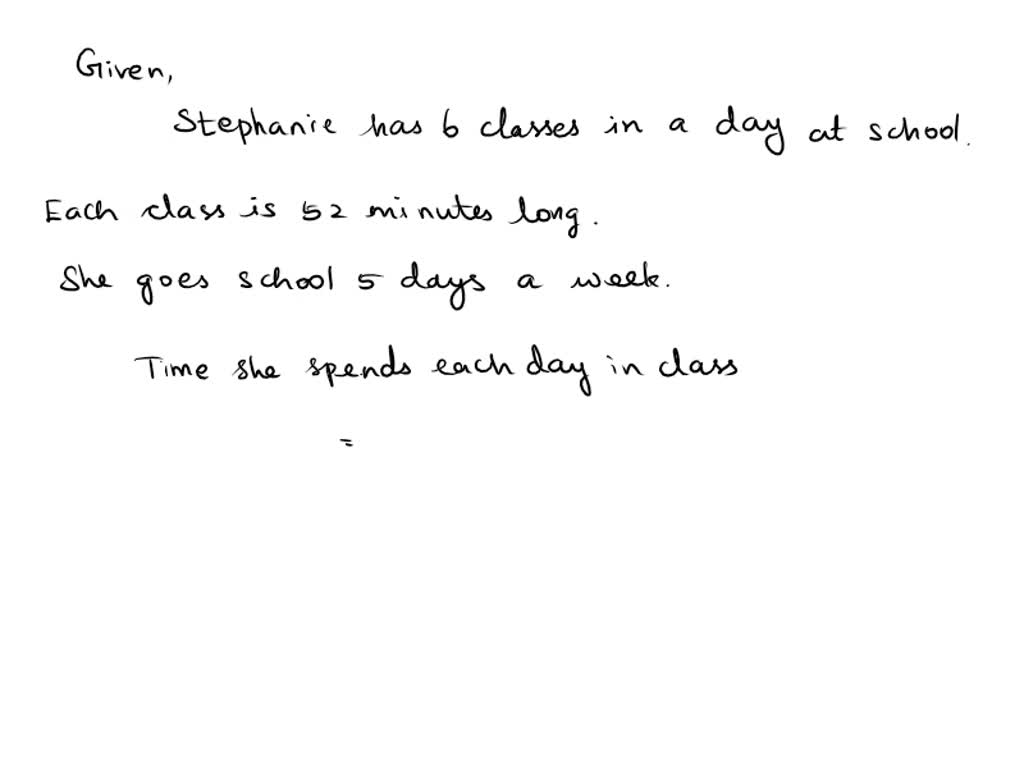 Given,
Stephanie has 6 classes in a day at school.
Each class is 52 minutes long.
She goes school 5 days a week.
Time she spends each day in class
=